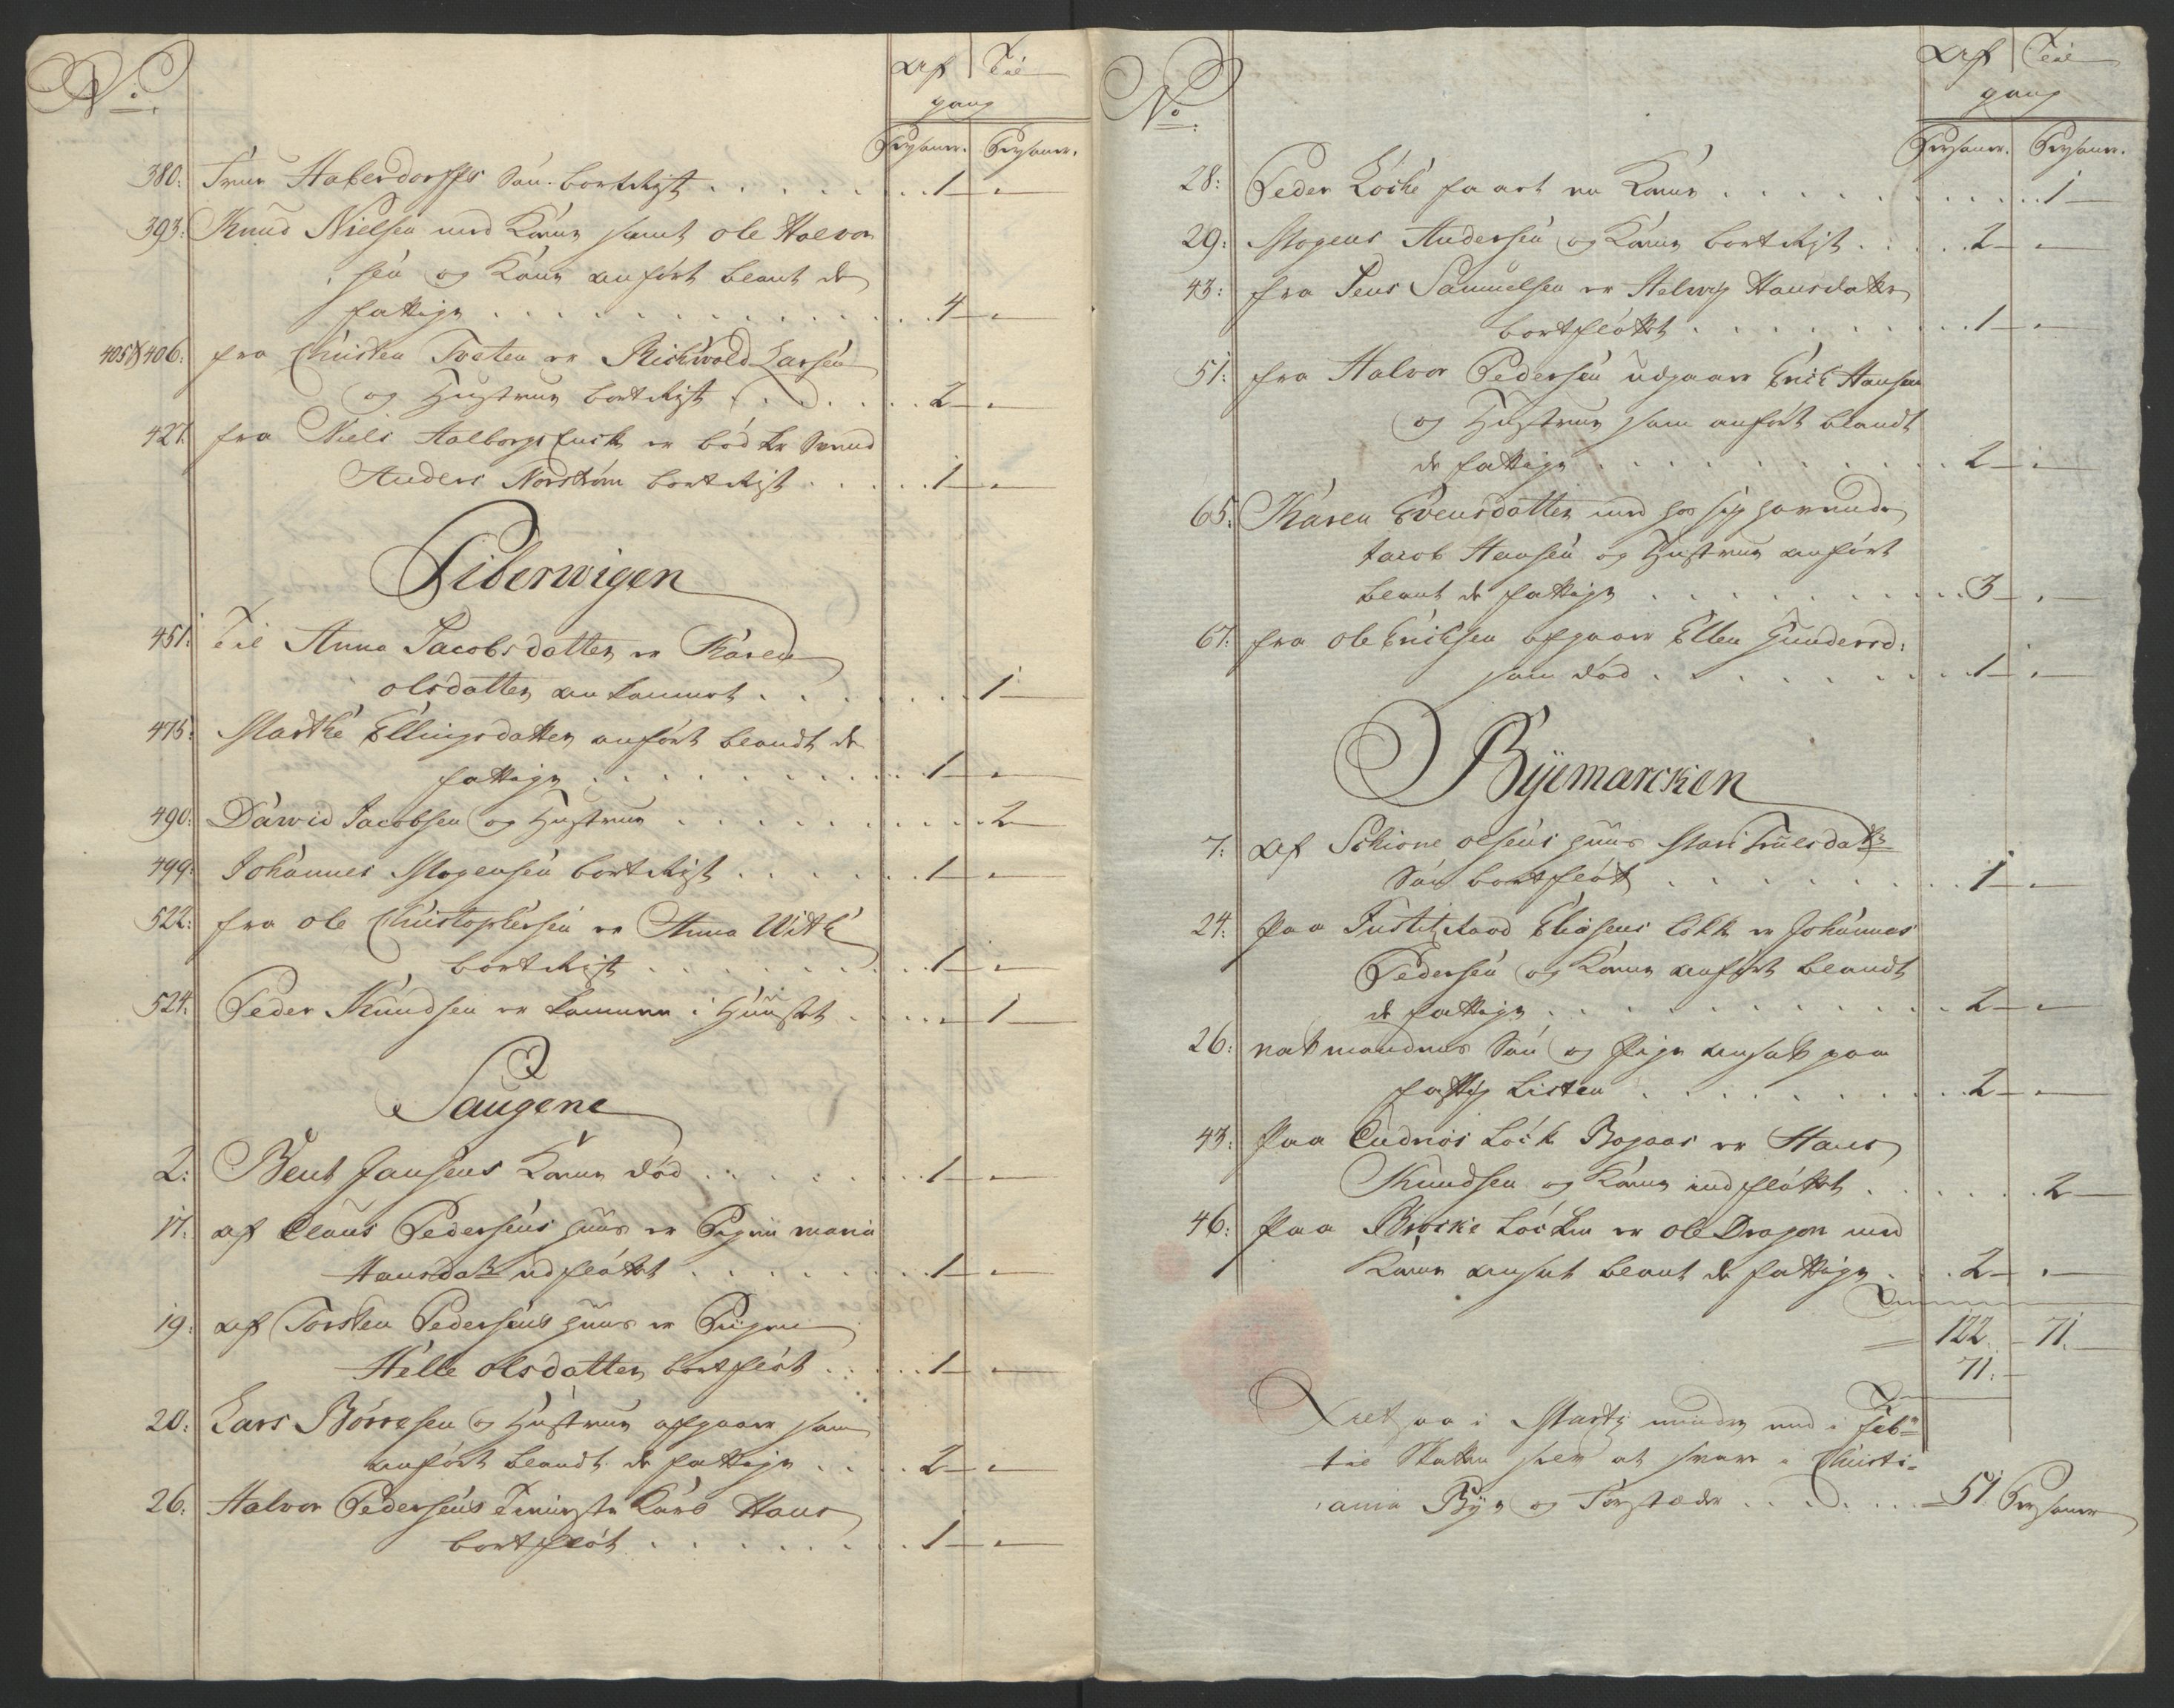 No.
Af | Til
gang
Persohner. Persohner.
380: Frue Haberdorffs Søn bortreyst . . . 1 — "
393: Knud Nielsen med Kone samt Ole Halvor
sen og Kone anført blant de
fattige . . . 4 — "
405 & 406: fra Christen Tveten er Richwold Larsen
og Hustrue bortreyst . . . 2 — "
427: fra Niels Aalborgs Enke er bødker Svend
Anders Nordstrøm bortreyst . . . 1 — "
Piberwigen
451: Til Anna Jacobsdatter er Karen
olsdatter ankommet . . . 1 —
475: Marthe Ellingsdatter anført blandt de
fattige . . . 1 — "
490: Dawid Jacobsen og Hustrue . . . 2
499: Johannes Mogensen bortreyst . . . 1 — "
522: fra Ole Christophersen er Anna Witt
bortreyst . . . 1 — "
524: Peder Knudsen er kommen i Huuset . . . 1 —
Saugene
2: Bent Jansens Kone død . . . 1 — "
17: af Claus Pedersens huus er Pigen maria
Hansdatr udfløttet . . . 1 — "
19: Af Torsten Pedersens huus er Piigen
Helle olsdatter bortfløt . . . 1 — "
20: Lars Børresen og Hustrue afgaaer som
anført blandt de fattige . . . 2 — "
26: Halvor Pedersens Tieniste Karl Hans
bortfløt . . . 1 — "
No.
Af | Til
gang
Persohner. Persohner.
28: Peder Løcke faaet en Kone . . . 1 —
29: Mogens Andersen og Kone bortreyst . . . 2 — "
43: fra Jens Samuelsen er Helwig Hansdatter
bortfløttet . . . 1 — "
51: fra Halvor Pedersen udgaaer Erich Hansen
og Hustrue som anført blandt
de fattige . . . 2 — "
65: Karen Evensdatter med hos sig havende
Jacob Hansen og Hustrue anført
blant de fattige . . . 3 — "
67: fra Ole Erichsen afgaaer Ellen Gundersd:
som død . . . 1 — "
Byemarcken
7: Af Schione olsens huus Mari Truelsdatrs
Søn bortfløt . . . 1 — "
24: paa Justitzraad Eliesens løkke er Johannes
Pedersen og Kone anført blandt
de fattige . . . 2 — "
26: natmandens Søn og Pige ansat paa
fattig Listen . . . 2 — "
43: paa Løck Bogaas er Hans
Knudsen og Kone indfløttet . . . 2 —
46: paa Løcken er Ole Dragon med
Kone ansat blant de fattige . . . 2 — "
122. — 71. —
71: —
Altsaa i Martj minder end i Febr:
til Skatten svar at svare i Christi-
ania Bye og Forstæder . . . = 51 Persohner